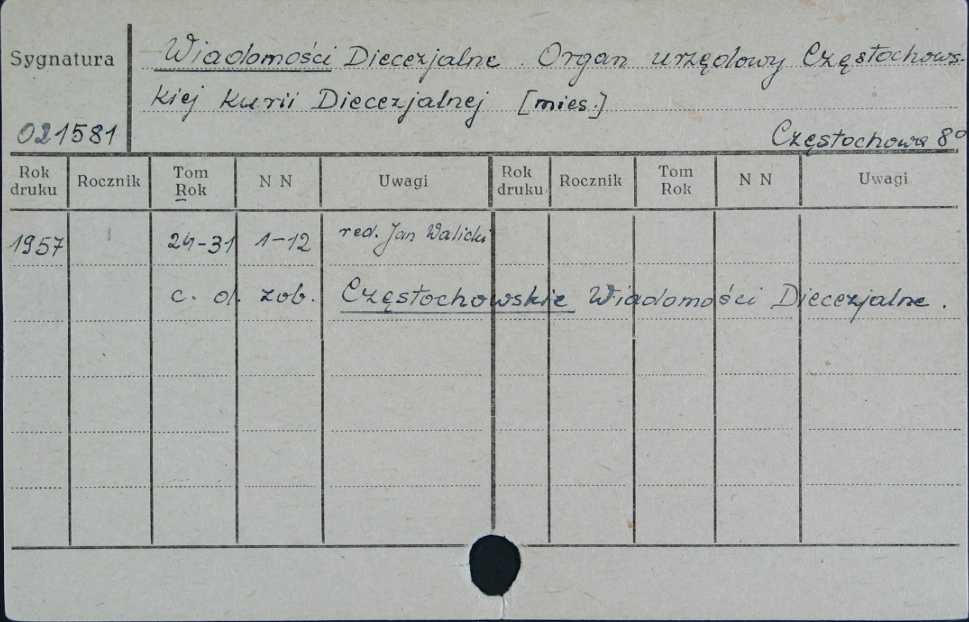 Sygnatura
Wiadomości Diecezjalne. Organ urzędowy Częstochows-
kiej Kurii Diecezjalnej [mies.]
021581
Częstochowa 8°
Rok druku Rocznik Tom Rok N N Uwagi Rok druku Rocznik Tom Rok N N Uwagi
1957 24-31 1-12 red. Jan Walicki
c. d. zob. Częstochowskie Wiadomości Diecezjalne.